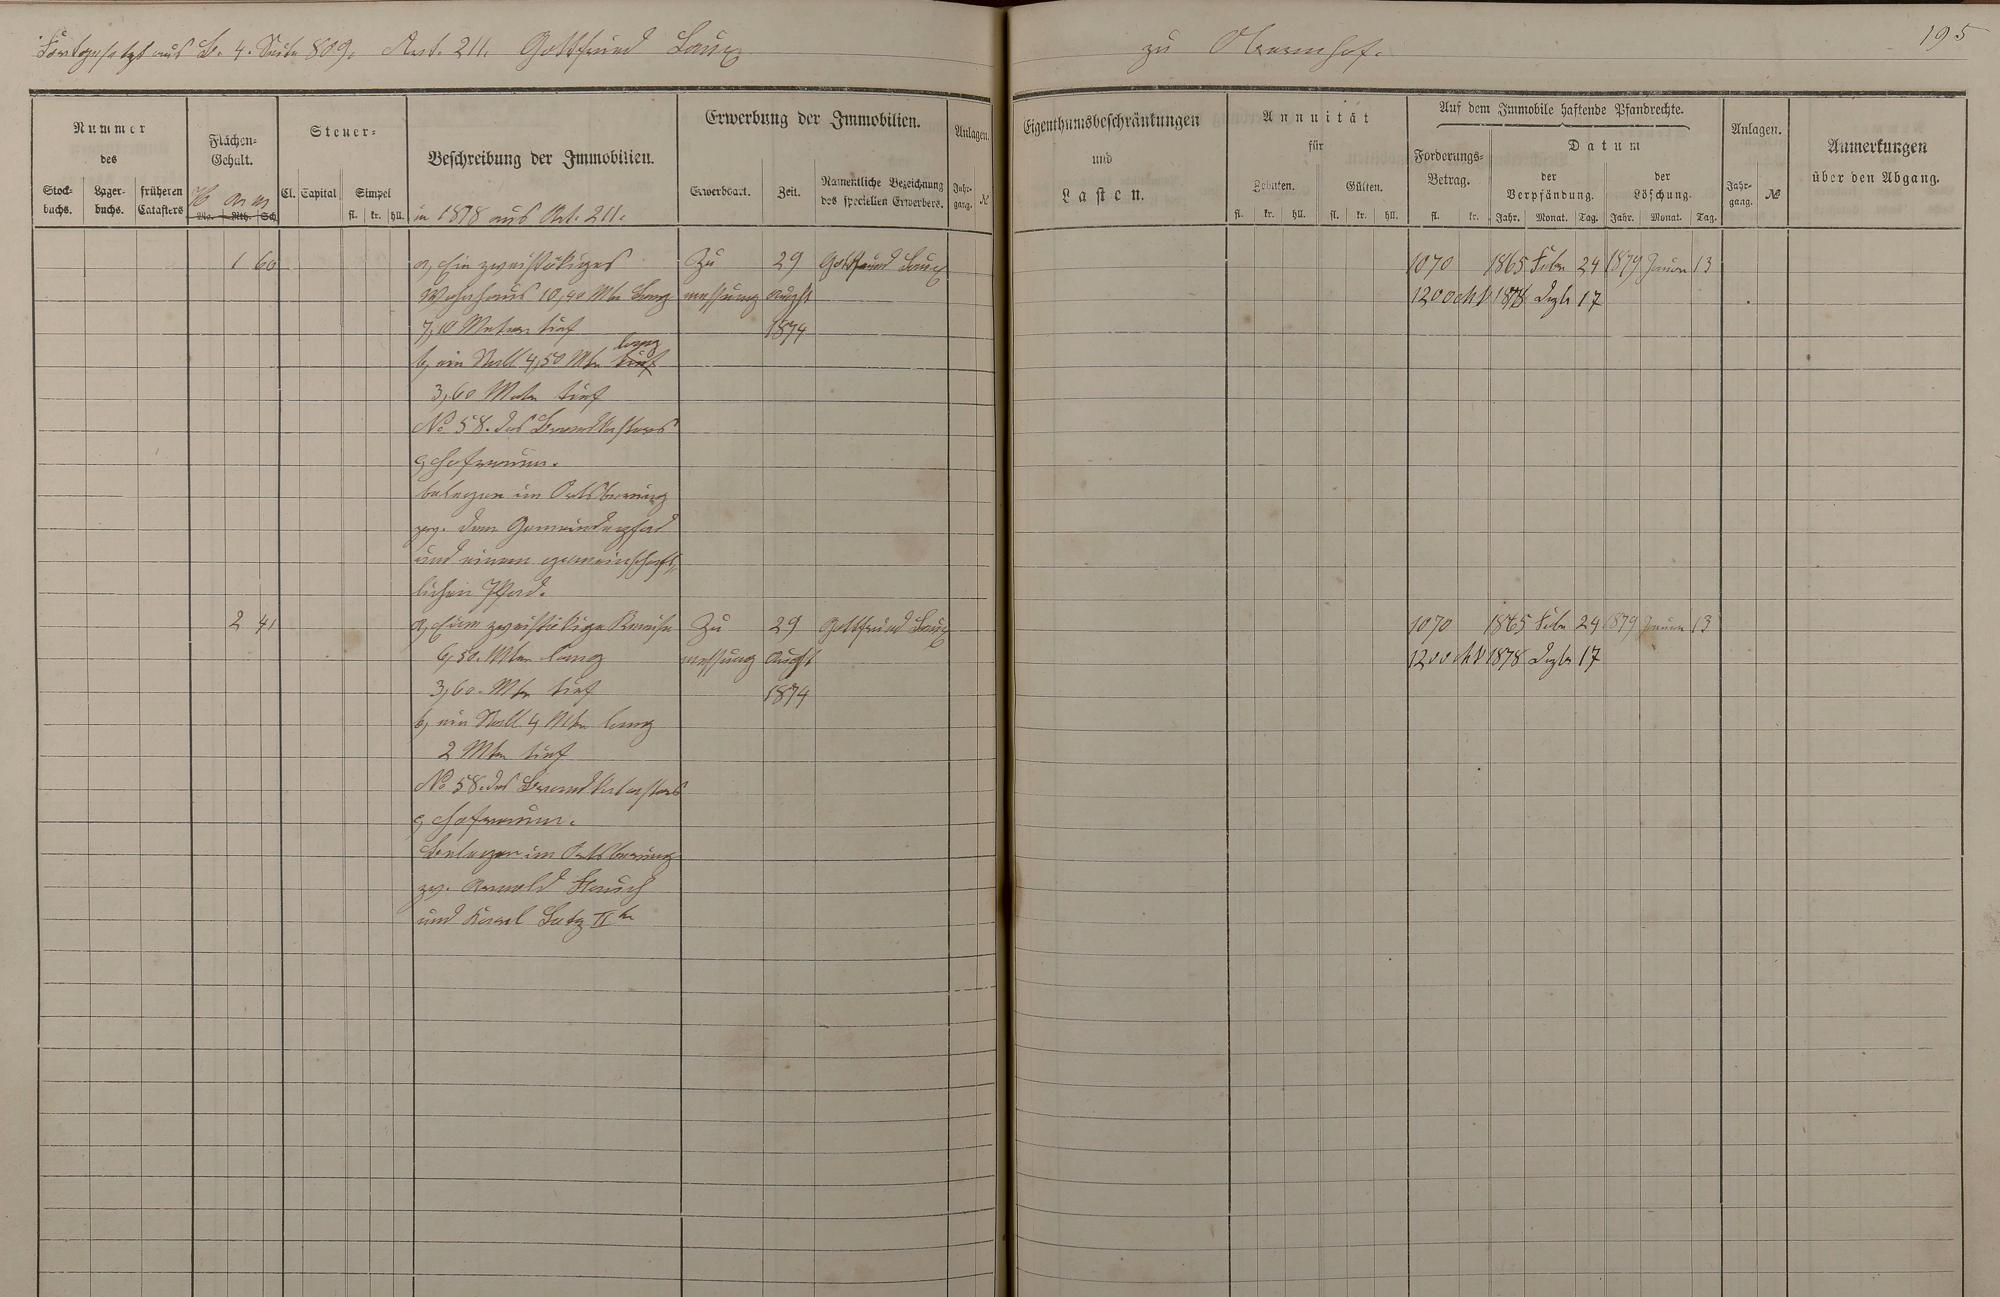 Fortgesetzt aus B. 4. Seite 809. Art. 211. Gottfried Laux
zu Obernhof.
195
Nummer
des
Stock-
buchs.
Lager-
buchs.
früheren
Catasters
Flächen-
Gehalt.
Mg. Rth. Sch.
Steuer-
Cl. Capital
Simpel
fl. kr. hll.
Beschreibung der Immobilien.
in 1878 aus Art. 211.
Erwerbung der Immobilien.
Erwerbsart.
Zeit.
Namentliche Bezeichnung
des speciellen Erwerbers.
Anlagen.
Jahr-
gang.
№
Eigenthumsbeschränkungen
und
Lasten.
Annuität
für
Zehnten.
Gülten.
fl. kr. hll. fl. kr. hll.
Auf dem Immobile haftende Pfandrechte.
Forderungs-
Betrag.
fl. kr.
Datum
der
Verpfändung.
Jahr. Monat. Tag.
der
Löschung.
Jahr. Monat. Tag.
Anlagen.
Jahr-
gang.
№
Anmerkungen
über den Abgang.
1 60
a, Ein zweistökiges
Wohnhaus 10,40 Mtr lang
7,10 Meter tief
lang
b, ein Stall 4,50 Mtr tief
3,60 Mater tief
No 58. des Brandkasters
c, Hofraum.
belegen im Ortsbering
zw. dem Gemeindepfad
und einem gemeinschaft-
lichen Pfad.
Zu
messung
29
August
1874
Gottfried Laux
1070 1865 Febr 24 1879 Januar 13
1200 Mk 1878 Dezbr 17
2 41
a, Eine zweistökige Remise
6,50. Mtr lang
3,60. Mtr tief
b, ein Stall 4 Mtr lang
2 Mtr tief
No 58. des Brandkatasters
c, Hofraum.
Belegen im Ortsbering
zw. Arnold
und Karl Lutz IIr
Zu
messung
29
August
1874
Gottfried Laux
1070 1865 Febr 24 1879 Januar 13
1200 Mk 1878 Dezbr 17